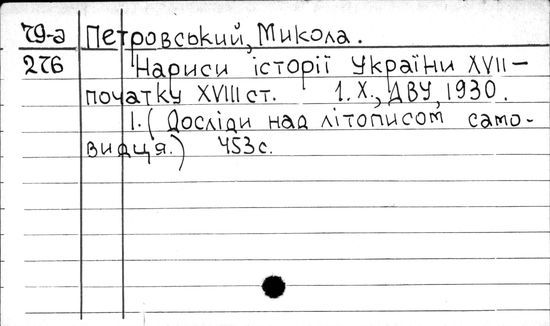 79-а Петровський, Микола.
276 Нариси історії України XVII-
початку XVIII ст. 1. Х., ДВУ, 1930.
1. (Досліди над літописом само-
видця.) 453 с.